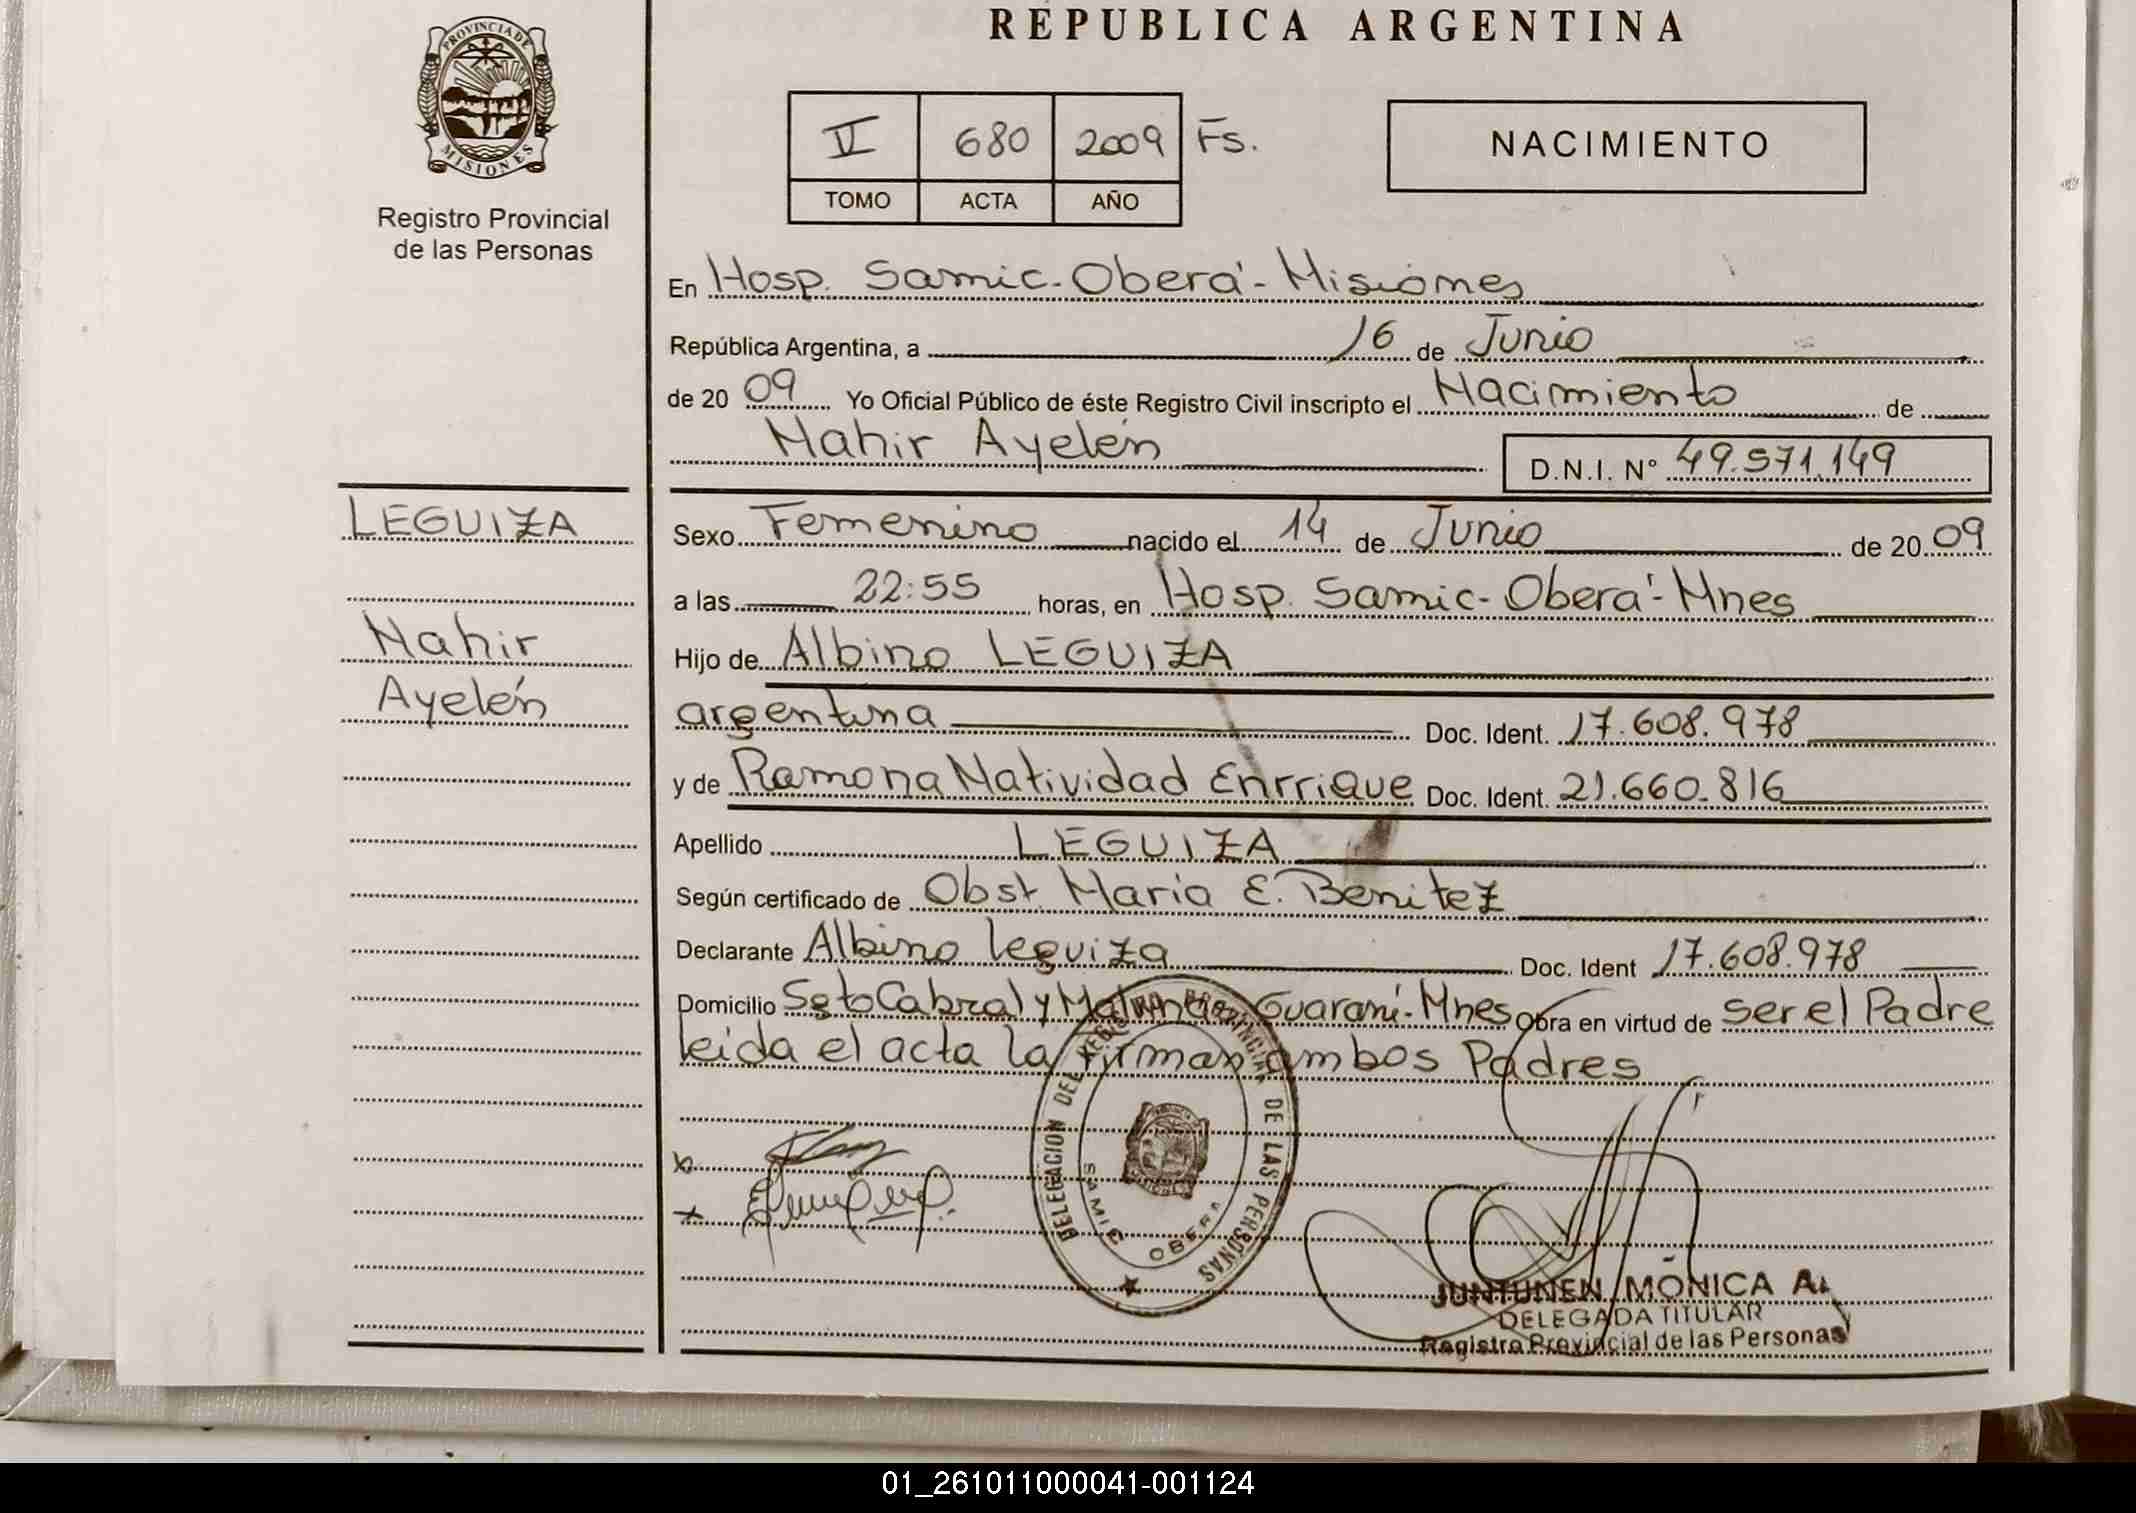 REPUBLICA ARGENTINA
PROVINCIA DE
MISIONES
Registro Provincial
de las Personas
VI 680 2009 Fs.
TOMO ACTA AÑO
NACIMIENTO
En Hosp. Samic-Oberá-Misiones
República Argentina, a 16 de Junio
de 2009 Yo Oficial Público de éste Registro Civil inscripto el Nacimiento de
Nahir Ayelén D.N.I. N° 49.571.149
LEGUIZA
Nahir
Ayelén
Sexo Femenino nacido el 14 de Junio de 2009
a las 22:55 horas, en Hosp. Samic-Oberá-Mnes
Hijo de Albino LEGUIZA
argentina Doc. Ident. 17.608.978
y de Ramona Natividad Enrrique Doc. Ident. 21.660.816
Apellido LEGUIZA
Según certificado de Obst. María E. Benitez
Declarante Albino leguiza Doc. Ident 17.608.978
Domicilio Sgto Cabral y Guaraní-Mnes Obra en virtud de ser el Padre
leida el acta la firman ambos Padres
DELEGACION DEL REGISTRO PROVINCIAL DE LAS PERSONAS
SAMIC OBERA
JUNTUNEN MÓNICA A.
DELEGADA TITULAR
Registro Provincial de las Personas
01_261011000041-001124